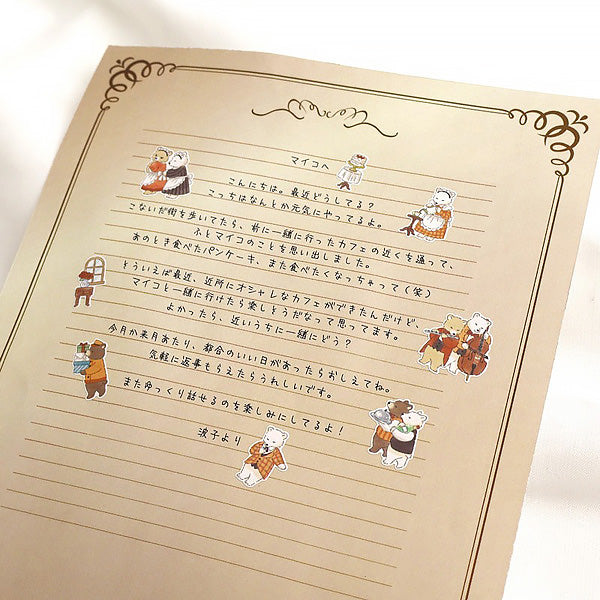 マイコへ
こんにちは。最近どうしてる？
こっちはなんとか元気にやってるよ。
こないだ街を歩いてたら、前に一緒に行ったカフェの近くを通って、
ふとマイコのことを思い出しました。
あのとき食べたパンケーキ、また食べたくなっちゃって(笑)
とういえば最近、近所にオシャレなカフェができたんだけど、
マイコと一緒に行けたら楽しそうだなって思ってます。
よかったら、近いうちに一緒にどう？
今月か来月あたり、都合のいい日があったらおしえてね。
気軽に返事もらえたらうれしいです。
またゆっくり話せるのを楽しみにしてるよ！
波子より